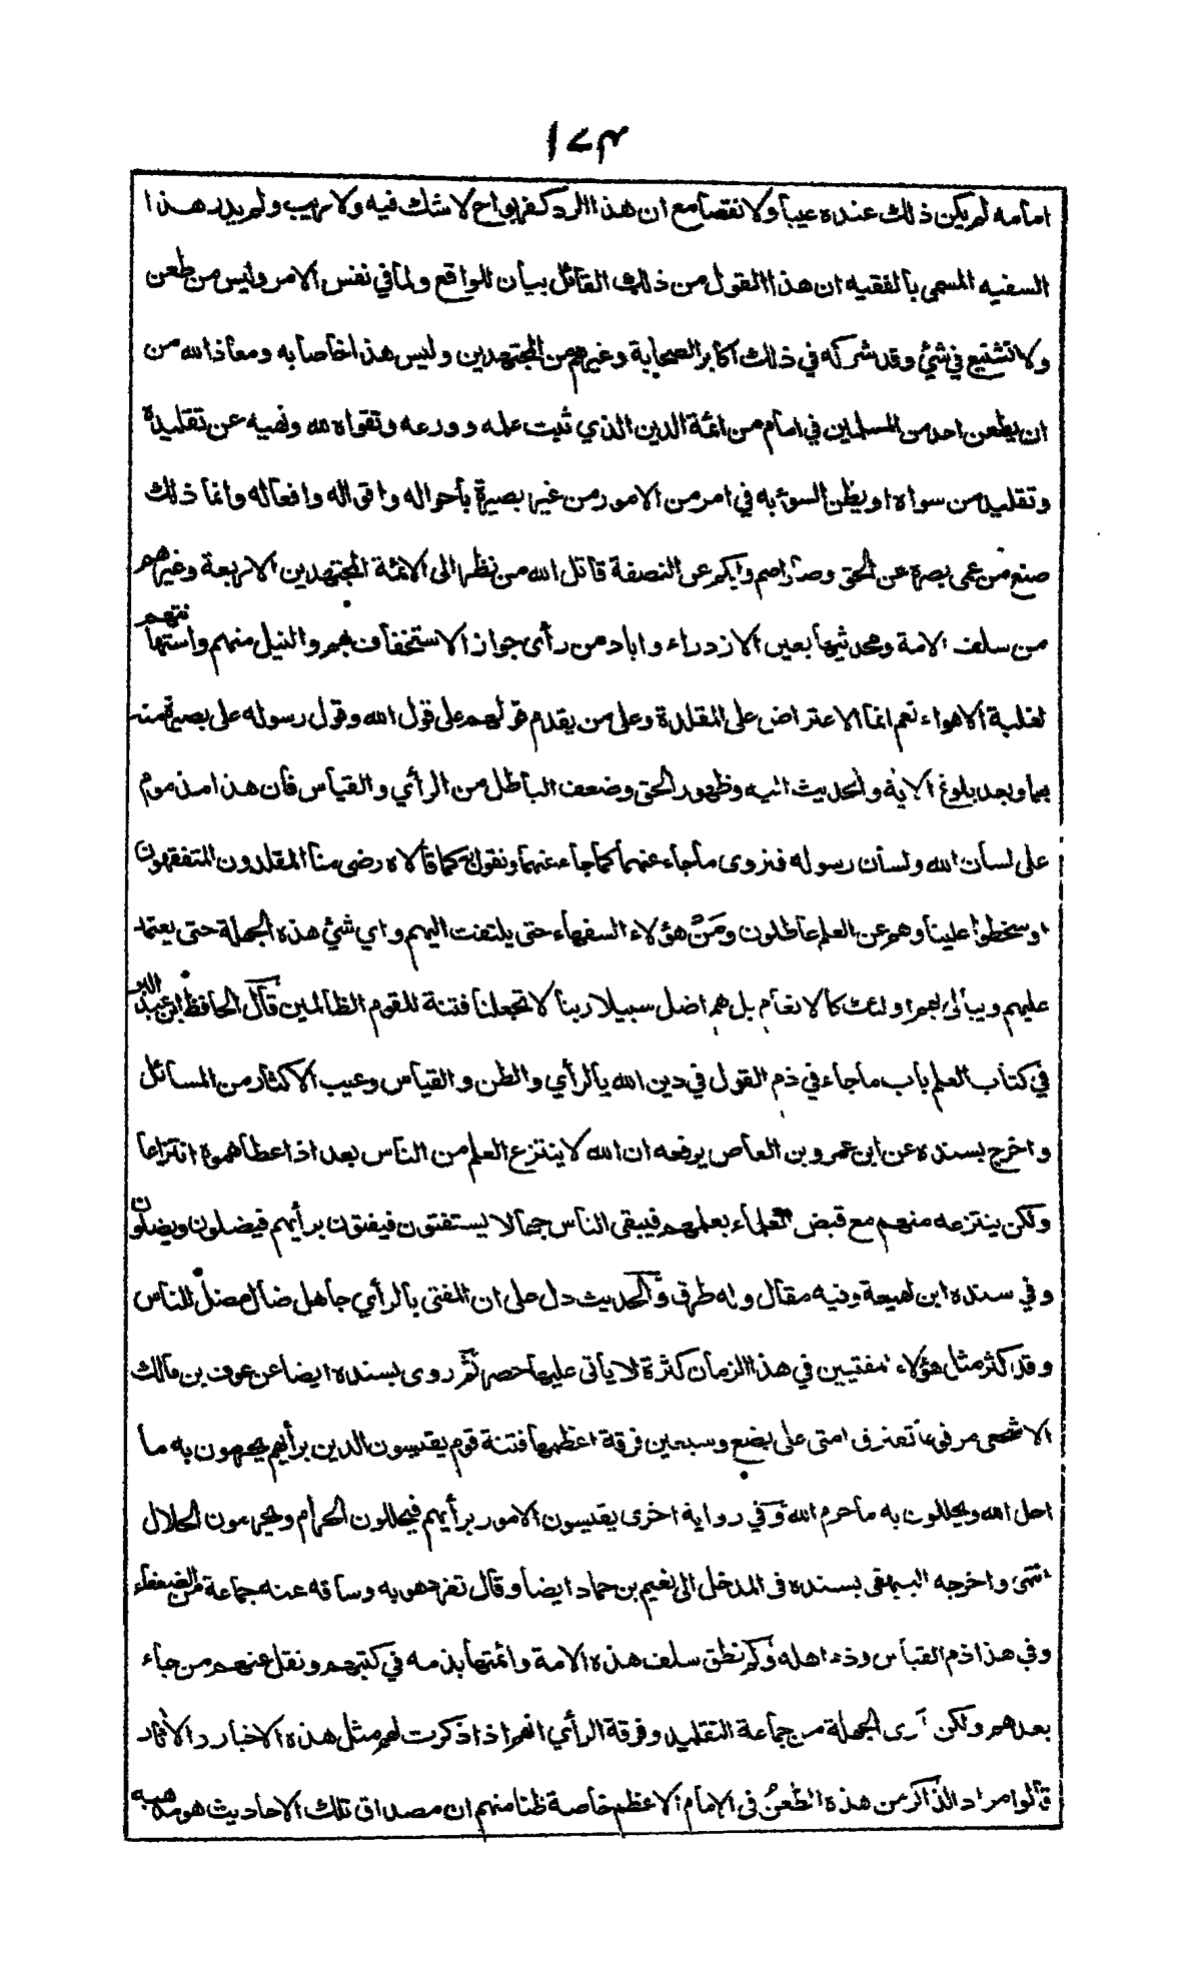 ١٧٣
امامه لم يكن ذلك عنده عيبا ولا نقصا مع ان هذا الرد كفر بواح لا شك فيه ولا ريب ولم يدر هذا
السفيه المسمى بالفقيه ان هذا القول من ذلك القائل بيان للواقع ولما في نفس الامر وليس من طعن
ولا تشنيع في شئ وقد شركه في ذلك اكابر الصحابة وغيرهم من المجتهدين وليس هذا خاصا به ومعاذ الله من
ان يطعن احد من المسلمين في امام من ائمة الدين الذي ثبت علمه وورعه وتقواه لله ونهيه عن تقليده
وتقليد من سواه او يظن السوء به في امر من الامور من غير بصيرة بأحواله واقواله وافعاله وانما ذلك
صنع من عمى بصره عن الحق وصار اصم وابكم عن النصفة قاتل الله من نظر الى الائمة المجتهدين الاربعة وغيرهم
من سلف الامة ومحدثيها بعين الازدراء واباد من رأى جواز الاستخفاف بهم والنيل منهم واستهانتهم
لغلبة الاهواء نعم انما الاعتراض على المقلدة وعلى من يقدم قولهم على قول الله وقول رسوله على بصيرة منه
بها وبعد بلوغ الاية والحديث اليه وظهور الحق وضعف الباطل من الرأي والقياس فان هذا مذموم
على لسان الله ولسان رسوله فنروى ما جاء عنهما كما جاء عنهما ونقول كما قالاه رضى منا المقلدون المتفقهون
او سخطوا علينا وهم عن العلم عاطلون ومن هؤلاء السفهاء حتى يلتفت اليهم واي شئ هذه الجهلة حتى يعتمد
عليهم ويبالى بهم اولئك كالانعام بل هم اضل سبيلا ربنا لا تجعلنا فتنة للقوم الظالمين قال الحافظ ابن عبد البر
في كتاب العلم باب ما جاء في ذم القول في دين الله بالرأي والظن والقياس وعيب الاكثار من المسائل
واخرج بسنده عن ابن عمرو بن العاص يرفعه ان الله لا ينتزع العلم من الناس بعد اذ اعطاهموه انتزاعا
ولكن ينتزعه منهم مع قبض العلماء بعلمهم فيبقى الناس جهالا يستفتون فيفتون برأيهم فيضلون ويضلون
وفي سنده ابن لهيعة وفيه مقال وله طرق والحديث دل على ان المفتى بالرأي جاهل ضال مضل للناس
وقد كثر مثل هؤلاء المفتيين في هذا الزمان كثرة لا يأتى عليها حصر ثم روى بسنده ايضا عن عوف بن مالك
الاشجعى مرفوعا تفترق امتى على بضع وسبعين فرقة اعظمها فتنة قوم يقيسون الدين برأيهم يحرمون به ما
احل الله ويحللون به ما حرم الله وفي رواية اخرى يقيسون الامور برأيهم فيحللون الحرام ويحرمون الحلال
انتهى واخرجه البيهقى بسنده في المدخل الى نعيم بن حماد ايضا وقال تفرد هو به وساقه عنه جماعة من الضعفاء
وفي هذا ذم القياس وذم اهله وكم نطق سلف هذه الامة وائمتها بذمه في كتبهم ونقل عنهم من جاء
بعدهم ولكن ارى الجهلة من جماعة التقليد وفرقة الرأي انهم اذا ذكرت لهم مثل هذه الاخبار والاثار
قالوا مراد الذاكر من هذه الطعن في الإمام الاعظم خاصة ظنا منهم ان مصداق تلك الاحاديث هو مذهبه